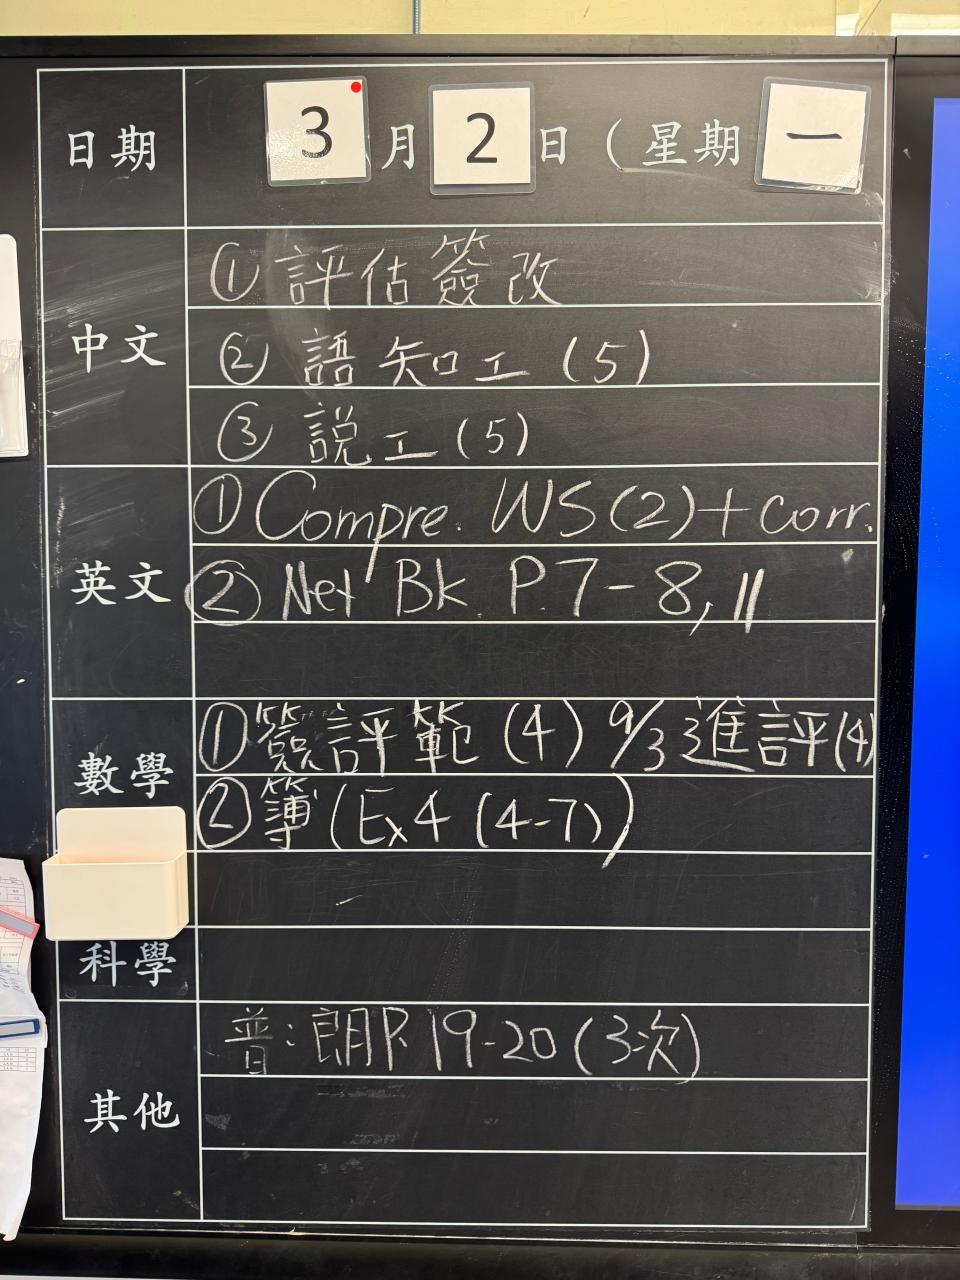 日期 3月2日(星期一
中文
①評估簽改
②語知工(5)
③説工(5)
英文
①Compre. WS(2)+corr.
②Net Bk. P.7-8, 11
數學
①簽評範(4) 9/3進評(4)
②簿(Ex4 (4-7))
科學
其他
普:朗P.19-20(3次)